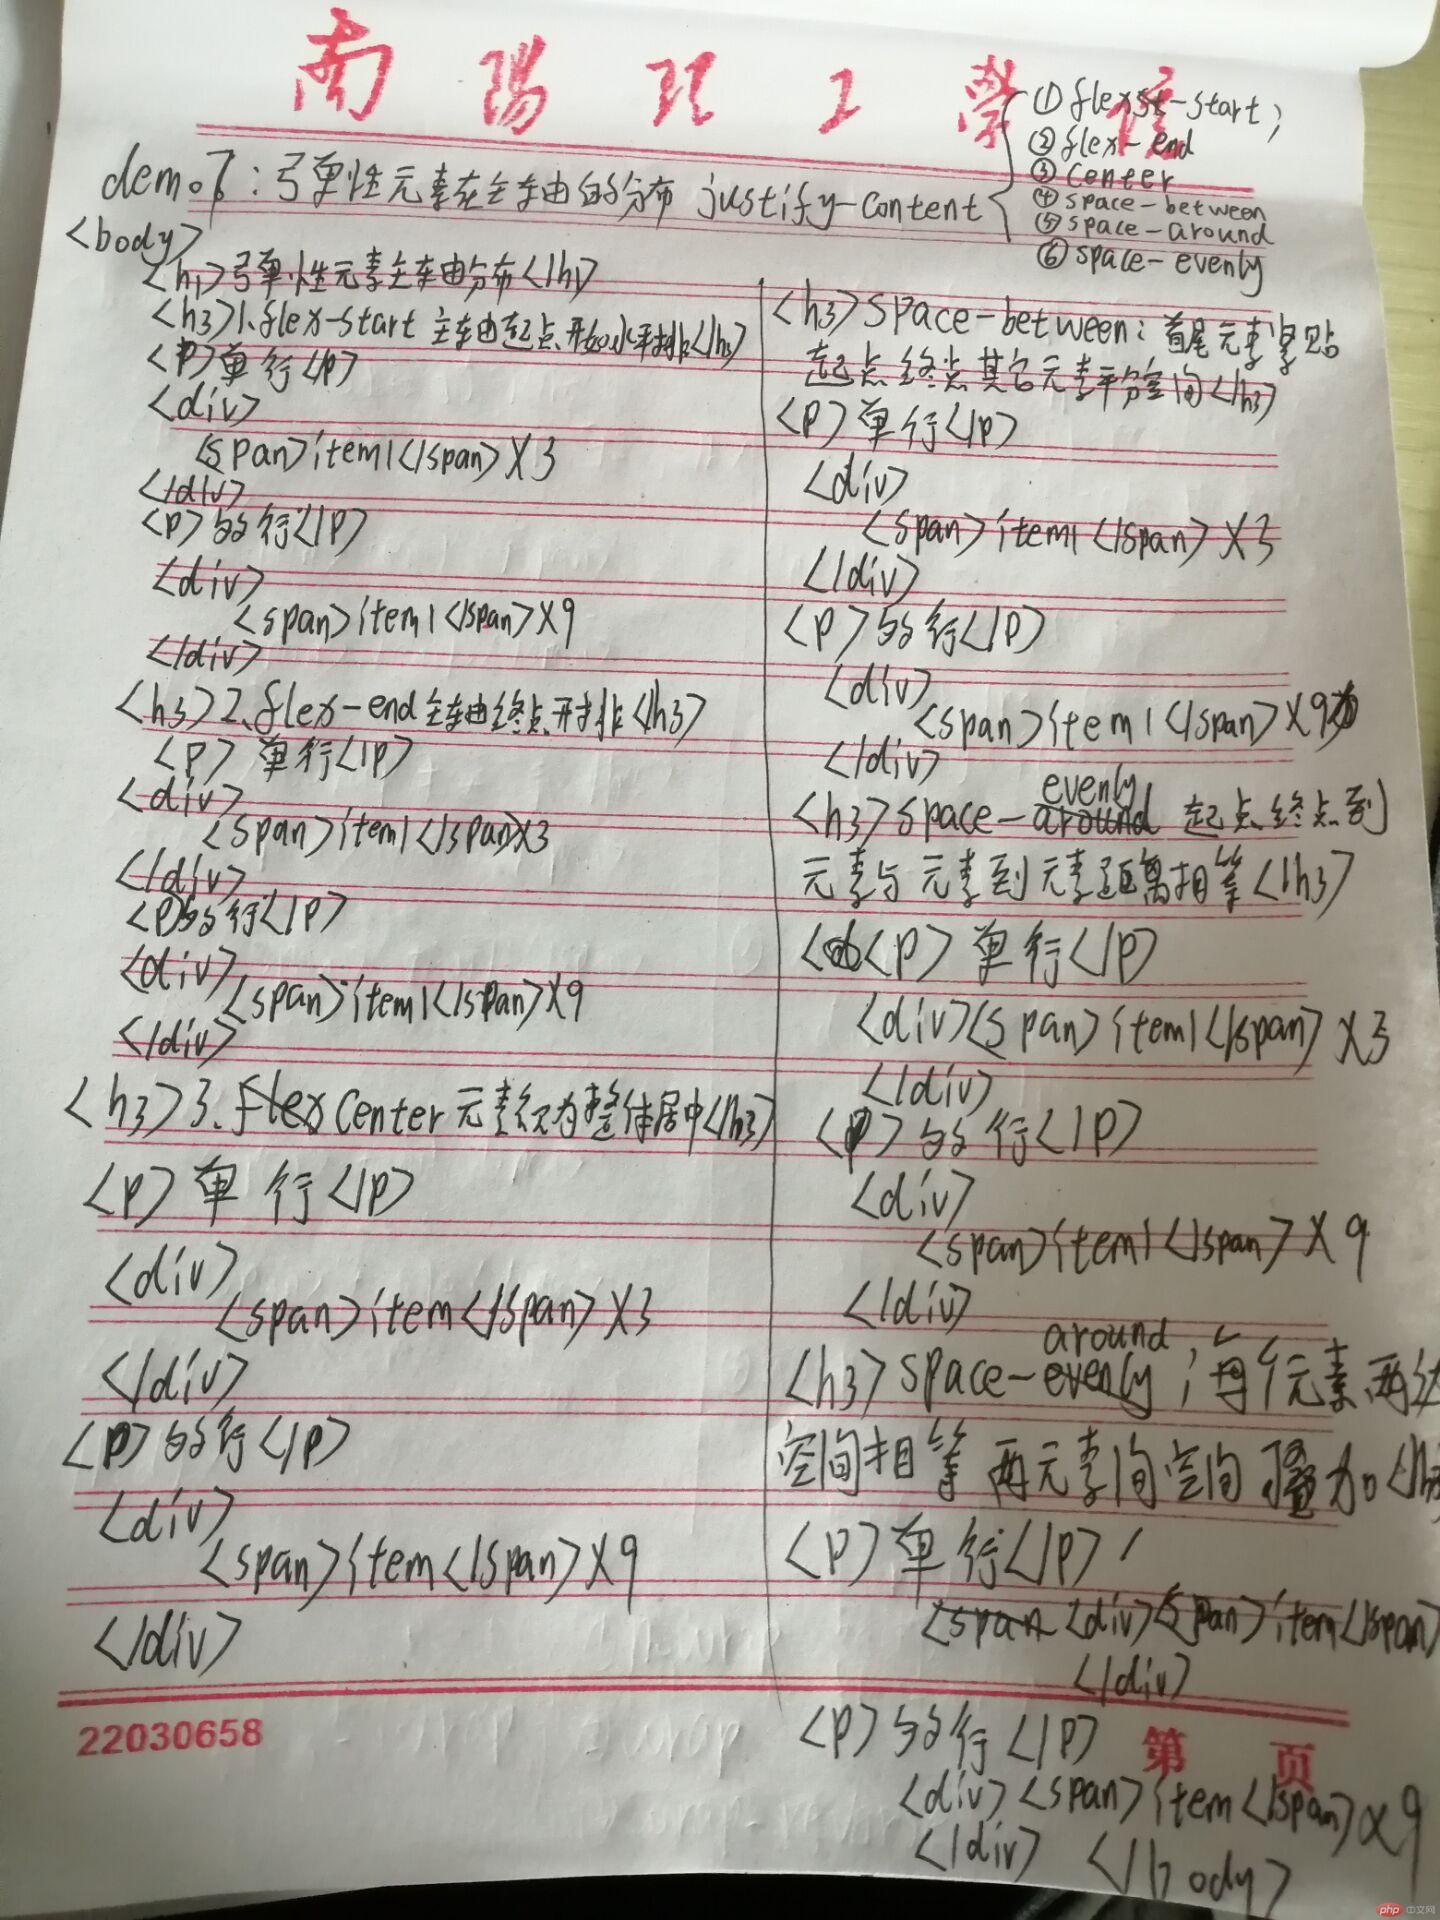 南陽理工學院
demo7:弹性元素在主轴的分布 justify-content
①flex-start;
②flex-end
③center
④space-between
⑤space-around
⑥space-evenly
<body>
<h1>弹性元素主轴分布</h1>
<h3>1.flex-start 主轴起点开始水平排</h3>
<P>单行</P>
<div>
<span>item1</span>X3
</div>
<P>多行</P>
<div>
<span>item1</span>X9
</div>
<h3>2.flex-end主轴终点开排</h3>
<P>单行</P>
<div>
<span>item1</span>X3
</div>
<P>多行</P>
<div>
<span>item1</span>X9
</div>
<h3>3.flex Center 元素视为整体居中</h3>
<P>单行</P>
<div>
<span>item</span>X3
</div>
<P>多行</P>
<div>
<span>item</span>X9
</div>
<h3>space-between:首尾元素紧贴
起点终点其它元素平分空间</h3>
<P>单行</P>
<div>
<span>item1</span>X3
</div>
<P>多行</P>
<div>
<span>item1</span>X9
</div>
evenly
<h3>space-around 起点终点到
元素与元素到元素距离相等</h3>
<P>单行</P>
<div><span>item1</span>X3
</div>
<P>多行</P>
<div>
<span>item1</span>X9
</div>
around
<h3>space-evenly;每个元素两边
空间相等 两元素间空间叠加</h3
<P>单行</P>
<span <div><span>item</span>
</div>
<P>多行</P>
<div><span>item</span>X9
</div> </body>
22030658
第 页
php 中文网